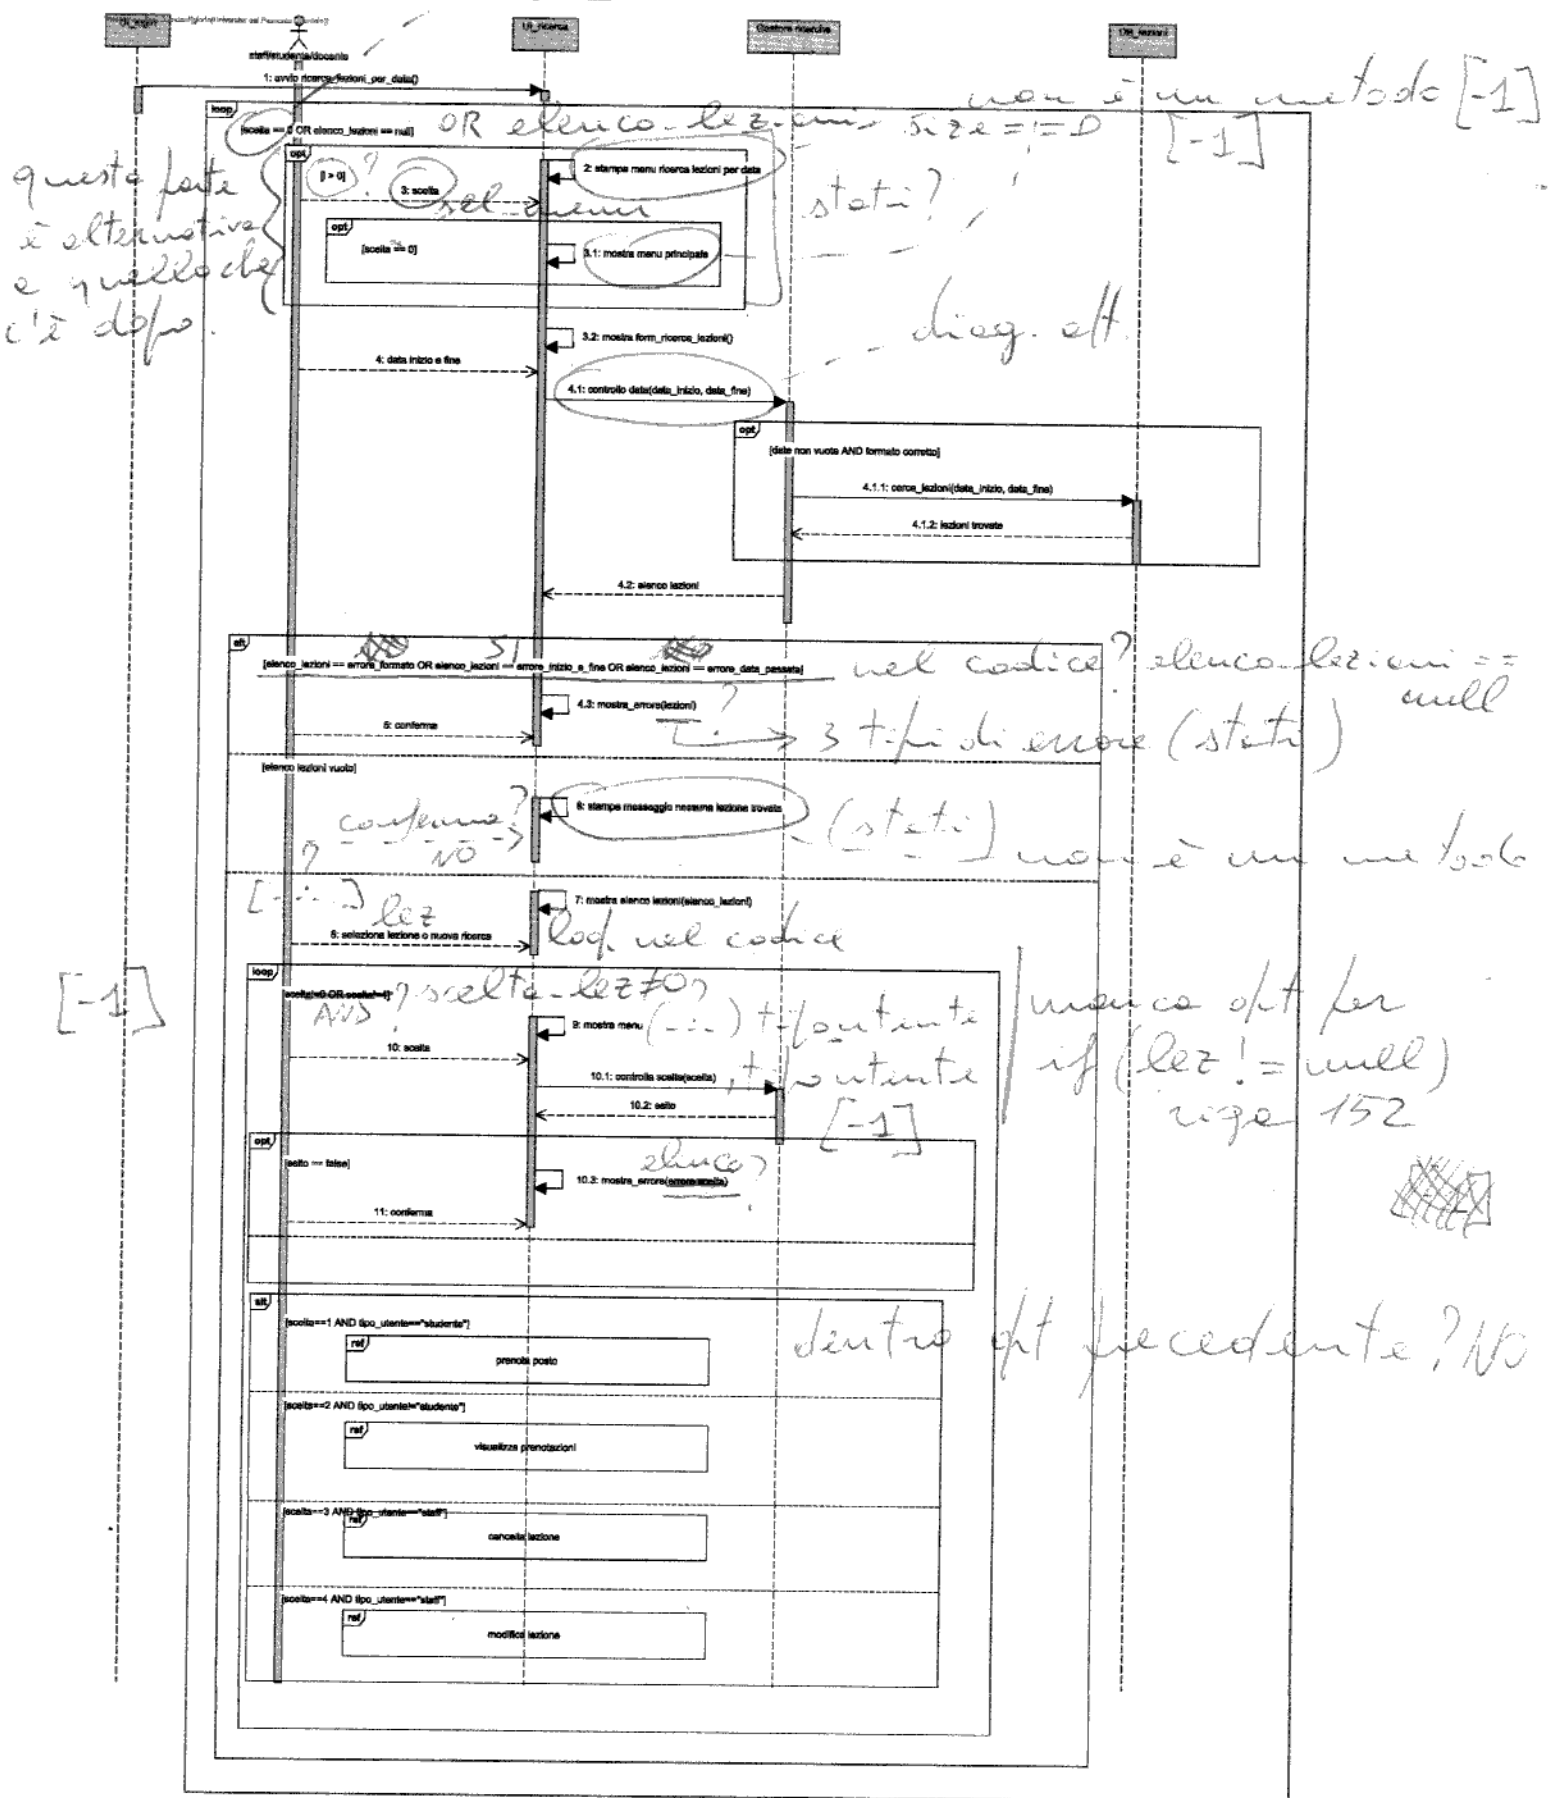 UI_ricerca
Gestore ricerche
DB_lezioni
staff/studente/docente
1: avvio ricerca_lezioni_per_data()
non è un metodo [-1]
loop
[scelta == 0 OR elenco_lezioni == null]
OR elenco-lezioni size == 0 [-1]
opt
[i > 0]
?
2: stampa menu ricerca lezioni per data
questa parte
è alternativa
a quello che
c'è dopo.
3: scelta
sel_menu
stati?
opt
[scelta == 0]
3.1: mostra menu principale
3.2: mostra form_ricerca_lezioni()
diag. att.
4: data inizio e fine
4.1: controllo data(data_inizio, data_fine)
opt
[date non vuote AND formato corretto]
4.1.1: cerca_lezioni(data_inizio, data_fine)
4.1.2: lezioni trovate
4.2: elenco lezioni
alt
SI
[elenco_lezioni == errore_formato OR elenco_lezioni == errore_inizio_e_fine OR elenco_lezioni == errore_data_passata]
nel codice? elenco-lezioni ==
null
4.3: mostra_errore(lezioni)
?
5: conferma
3 tipi di errore (stati)
[elenco lezioni vuoto]
6: stampa messaggio nessuna lezione trovata
conferma?
NO
(stati)
non è un metodo
?
[-..-]
lez
7: mostra elenco lezioni(elenco_lezioni)
8: selezione lezione o nuova ricerca
loop nel codice
loop
[-1]
[scelta!=0 OR scelta!=4]
AND
?
scelta-lez≠0?
9: mostra menu
(-..-) tipoutente
manca opt per
if (lez != null)
riga 152
10: scelta
10.1: controlla scelta(scelta)
, tipoutente
10.2: esito
[-1]
opt
[esito == false]
elenco?
10.3: mostra_errore(errore scelta)
?
11: conferma
alt
[scelta==1 AND tipo_utente=="studente"]
ref
prenota posto
dentro opt precedente? NO
[scelta==2 AND tipo_utente!="studente"]
ref
visualizza prenotazioni
[scelta==3 AND tipo_utente=="staff"]
ref
cancella lezione
[scelta==4 AND tipo_utente=="staff"]
ref
modifica lezione